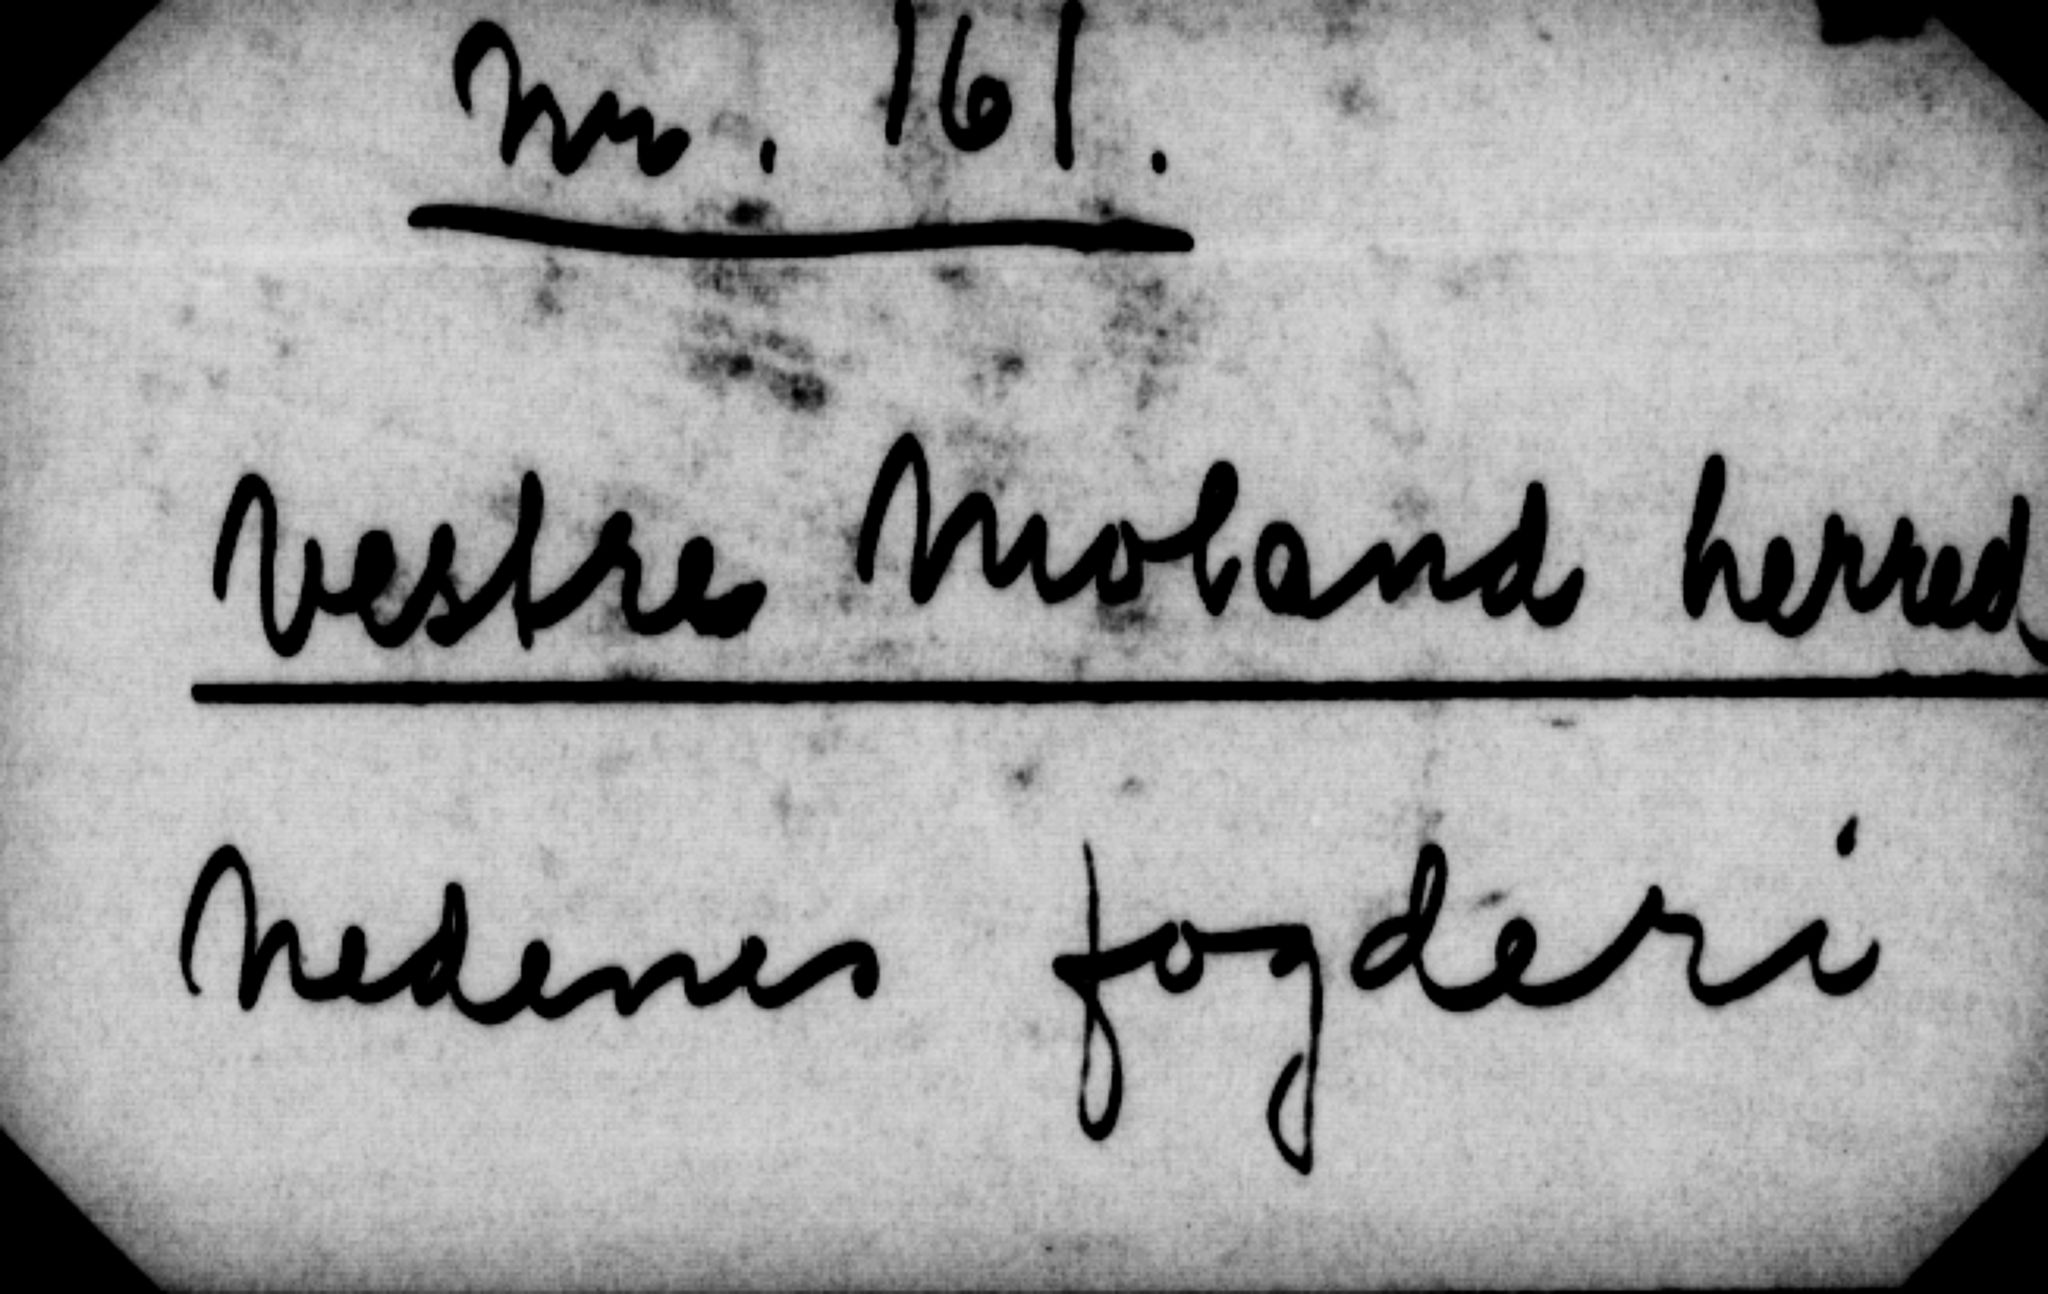 Nr. 161.
Vestre Moland herred
Nedenes fogderi